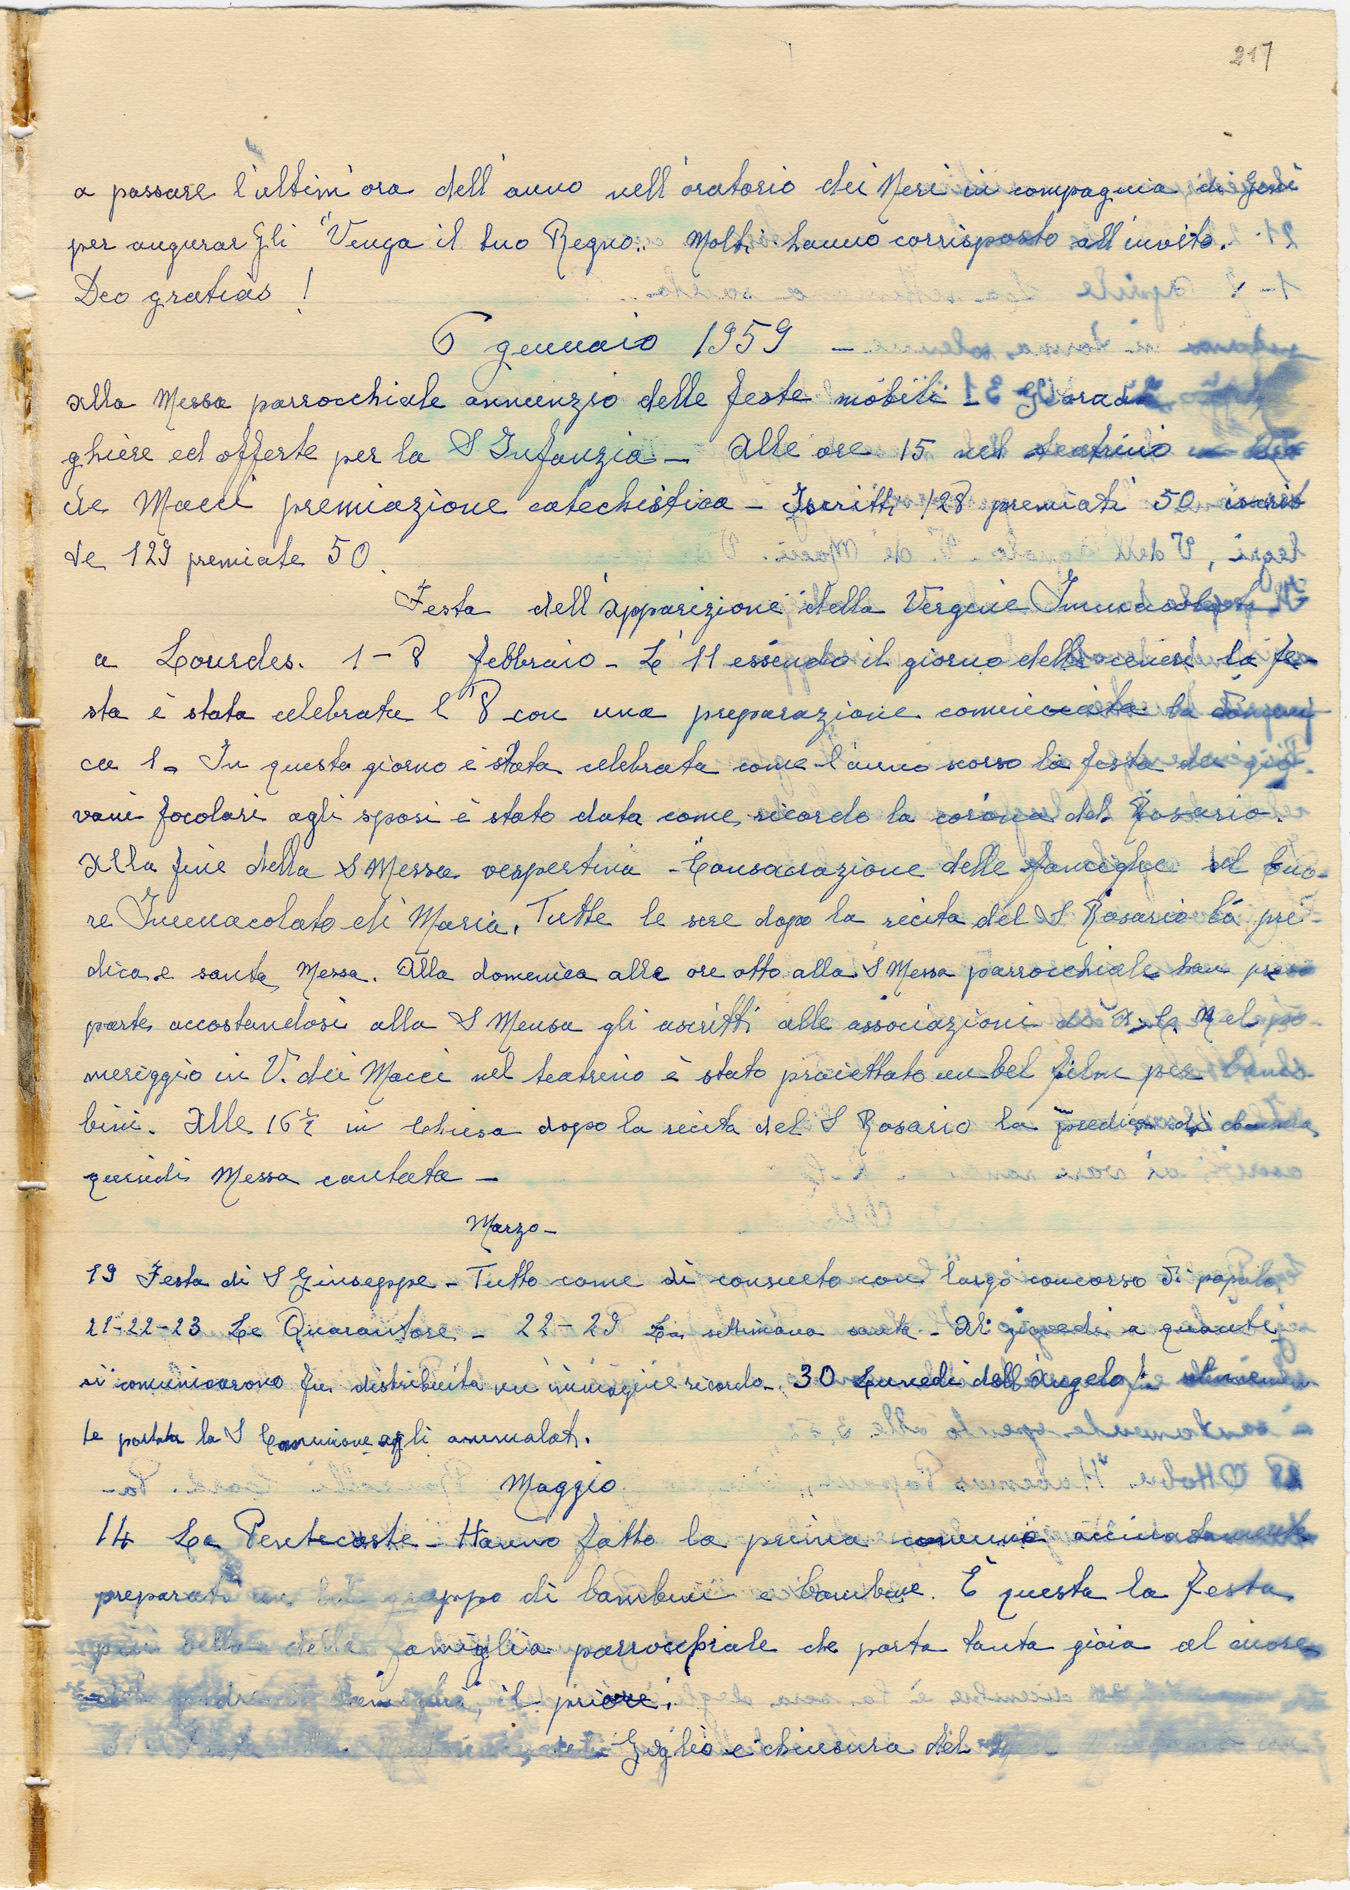 217
a passare l'ultim'ora dell'anno nell'oratorio dei Neri in compagnia di Gesù
per augurargli "Venga il tuo Regno". Molti hanno corrisposto all'invito.
Deo gratias!
6 gennaio 1959 -
Alla Messa parrocchiale annunzio delle feste mobili -
ghiere ed offerte per la S Infanzia - Alle ore 15 nel teatrino
de Macci premiazione catechistica - Iscritti 128 premiati 50 iscrit
te 129 premiate 50.
Festa dell'Apparizione della Vergine Immacolata
a Lourdes. 1-8 febbraio - L'11 essendo il giorno delle ceneri la fe-
sta è stata celebrata l'8 con una preparazione cominciata la domeni
ca 1a In questa giorno è stata celebrata come l'anno scorso la festa dei gio-
vani focolari agli sposi è stato data come ricordo la corona del Rosario.
Alla fine della S Messa vespertina - Consacrazione delle famiglie al Cuo-
re Immacolato di Maria. Tutte le sere dopo la recita del S Rosario la pre
dica e santa Messa. Alla domenica alle ore otto alla S Messa parrocchiale han preso
parte accostandosi alla S Mensa gli ascritti alle associazioni di A. C. Nel po
meriggio in V. dei Macci nel teatrino è stato proiettato un bel film per bam
bini. Alle 16½ in Chiesa dopo la recita del S Rosario la predica di chiusura,
quindi Messa cantata -
Marzo -
19 Festa di S Giuseppe - Tutto come di consueto con largo concorso di popolo.
21-22-23 Le Quarantore - 22-29 La settimana santa - Al giovedì a quanti
si comunicarono fu distribuita un'immagine ricordo - 30 Lunedì dell'Angelo fu
te portata la S Comunione agli ammalati.
Maggio
14 La Pentecoste - Hanno fatto la prima comunione accuratamente
preparati un bel gruppo di bambini e bambine. È questa la festa
più bella della famiglia parrocchiale che porta tanta gioia al cuore
del padre di famiglia, il priore.
Giglio e chiusura del